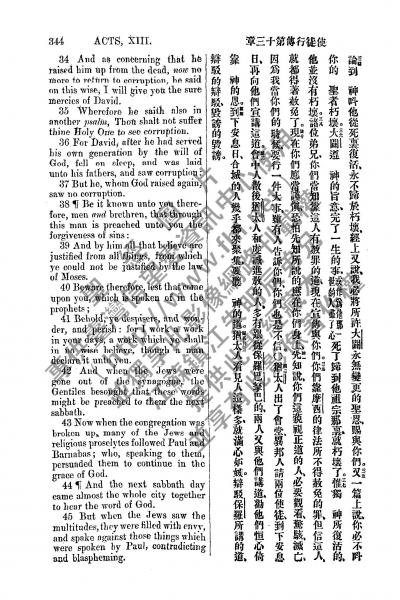 344 ACTS, XIII. 章三十第傳行徒使
34 And as concerning that he
raised him up from the dead, now no
more to return to corruption, he said
on this wise, I will give you the sure
mercies of David.
35 Wherefore he saith also in
another psalm, Thou shalt not suffer
thine Holy One to see corruption.
36 For David, after he had served
his own generation by the will of
God, fell on sleep, and was laid
unto his fathers, and saw corruption:
37 But he, whom God raised again,
saw no corruption.
38 ¶ Be it known unto you there-
fore, men and brethren, that through
this man is preached unto you the
forgiveness of sins:
39 And by him all that believe are
justified from all things, from which
ye could not be justified by the law
of Moses.
40 Beware therefore, lest that come
upon you, which is spoken of in the
prophets;
41 Behold, ye despisers, and won-
der, and perish: for I work a work
in your days, a work which ye shall
in no wise believe, though a man
declare it unto you.
42 And when the Jews were
gone out of the synagogue, the
Gentiles besought that these words
might be preached to them the next
sabbath.
43 Now when the congregation was
broken up, many of the Jews and
religious proselytes followed Paul and
Barnabas; who, speaking to them,
persuaded them to continue in the
grace of God.
44 ¶ And the next sabbath day
came almost the whole city together
to hear the word of God.
45 But when the Jews saw the
multitudes, they were filled with envy,
and spake against those things which
were spoken by Paul, contradicting
and blaspheming.
論到 神呌他從死裏復活、永不歸於朽壞、經上又說、我必將所許大闢永無變更的聖恩賜與你們、又一篇上說、你必不呌
你的 聖者朽壞、大闢遵 神的旨意、完了一生的事、死了歸到他祖宗那裏、就朽壞了、惟獨 神所復活的、
他並沒有朽壞、諸位弟兄、你們當知靠這人有赦罪的道、現在宣傳與你們、你們靠摩西的律法所不得赦免的罪、但信這人、
就都得著赦免了、現在你們應當謹慎、恐怕先知所說的應在你們身上、先知說、你們這藐視正道的人、必要觀看、驚駭、滅亡、
因爲我當你們的時候、要行一件大事、雖有人告訴你們、你們也是不信、猶太人出了會堂、異邦人請兩位使徒、到下安息
日、再向他們宣講這道、會中人散後、猶太人和虔誠進教的人、多有跟從保羅巴拿巴的、兩人又與他們講道、勸他們恒心倚
靠 神的恩、到下安息日、合城的人幾乎都來聚集、要聽 神的道、猶太人看見人這樣多、就滿心嫉妒、辯駁保羅所講的道、
辯駁的辯駁、毀謗的毀謗、